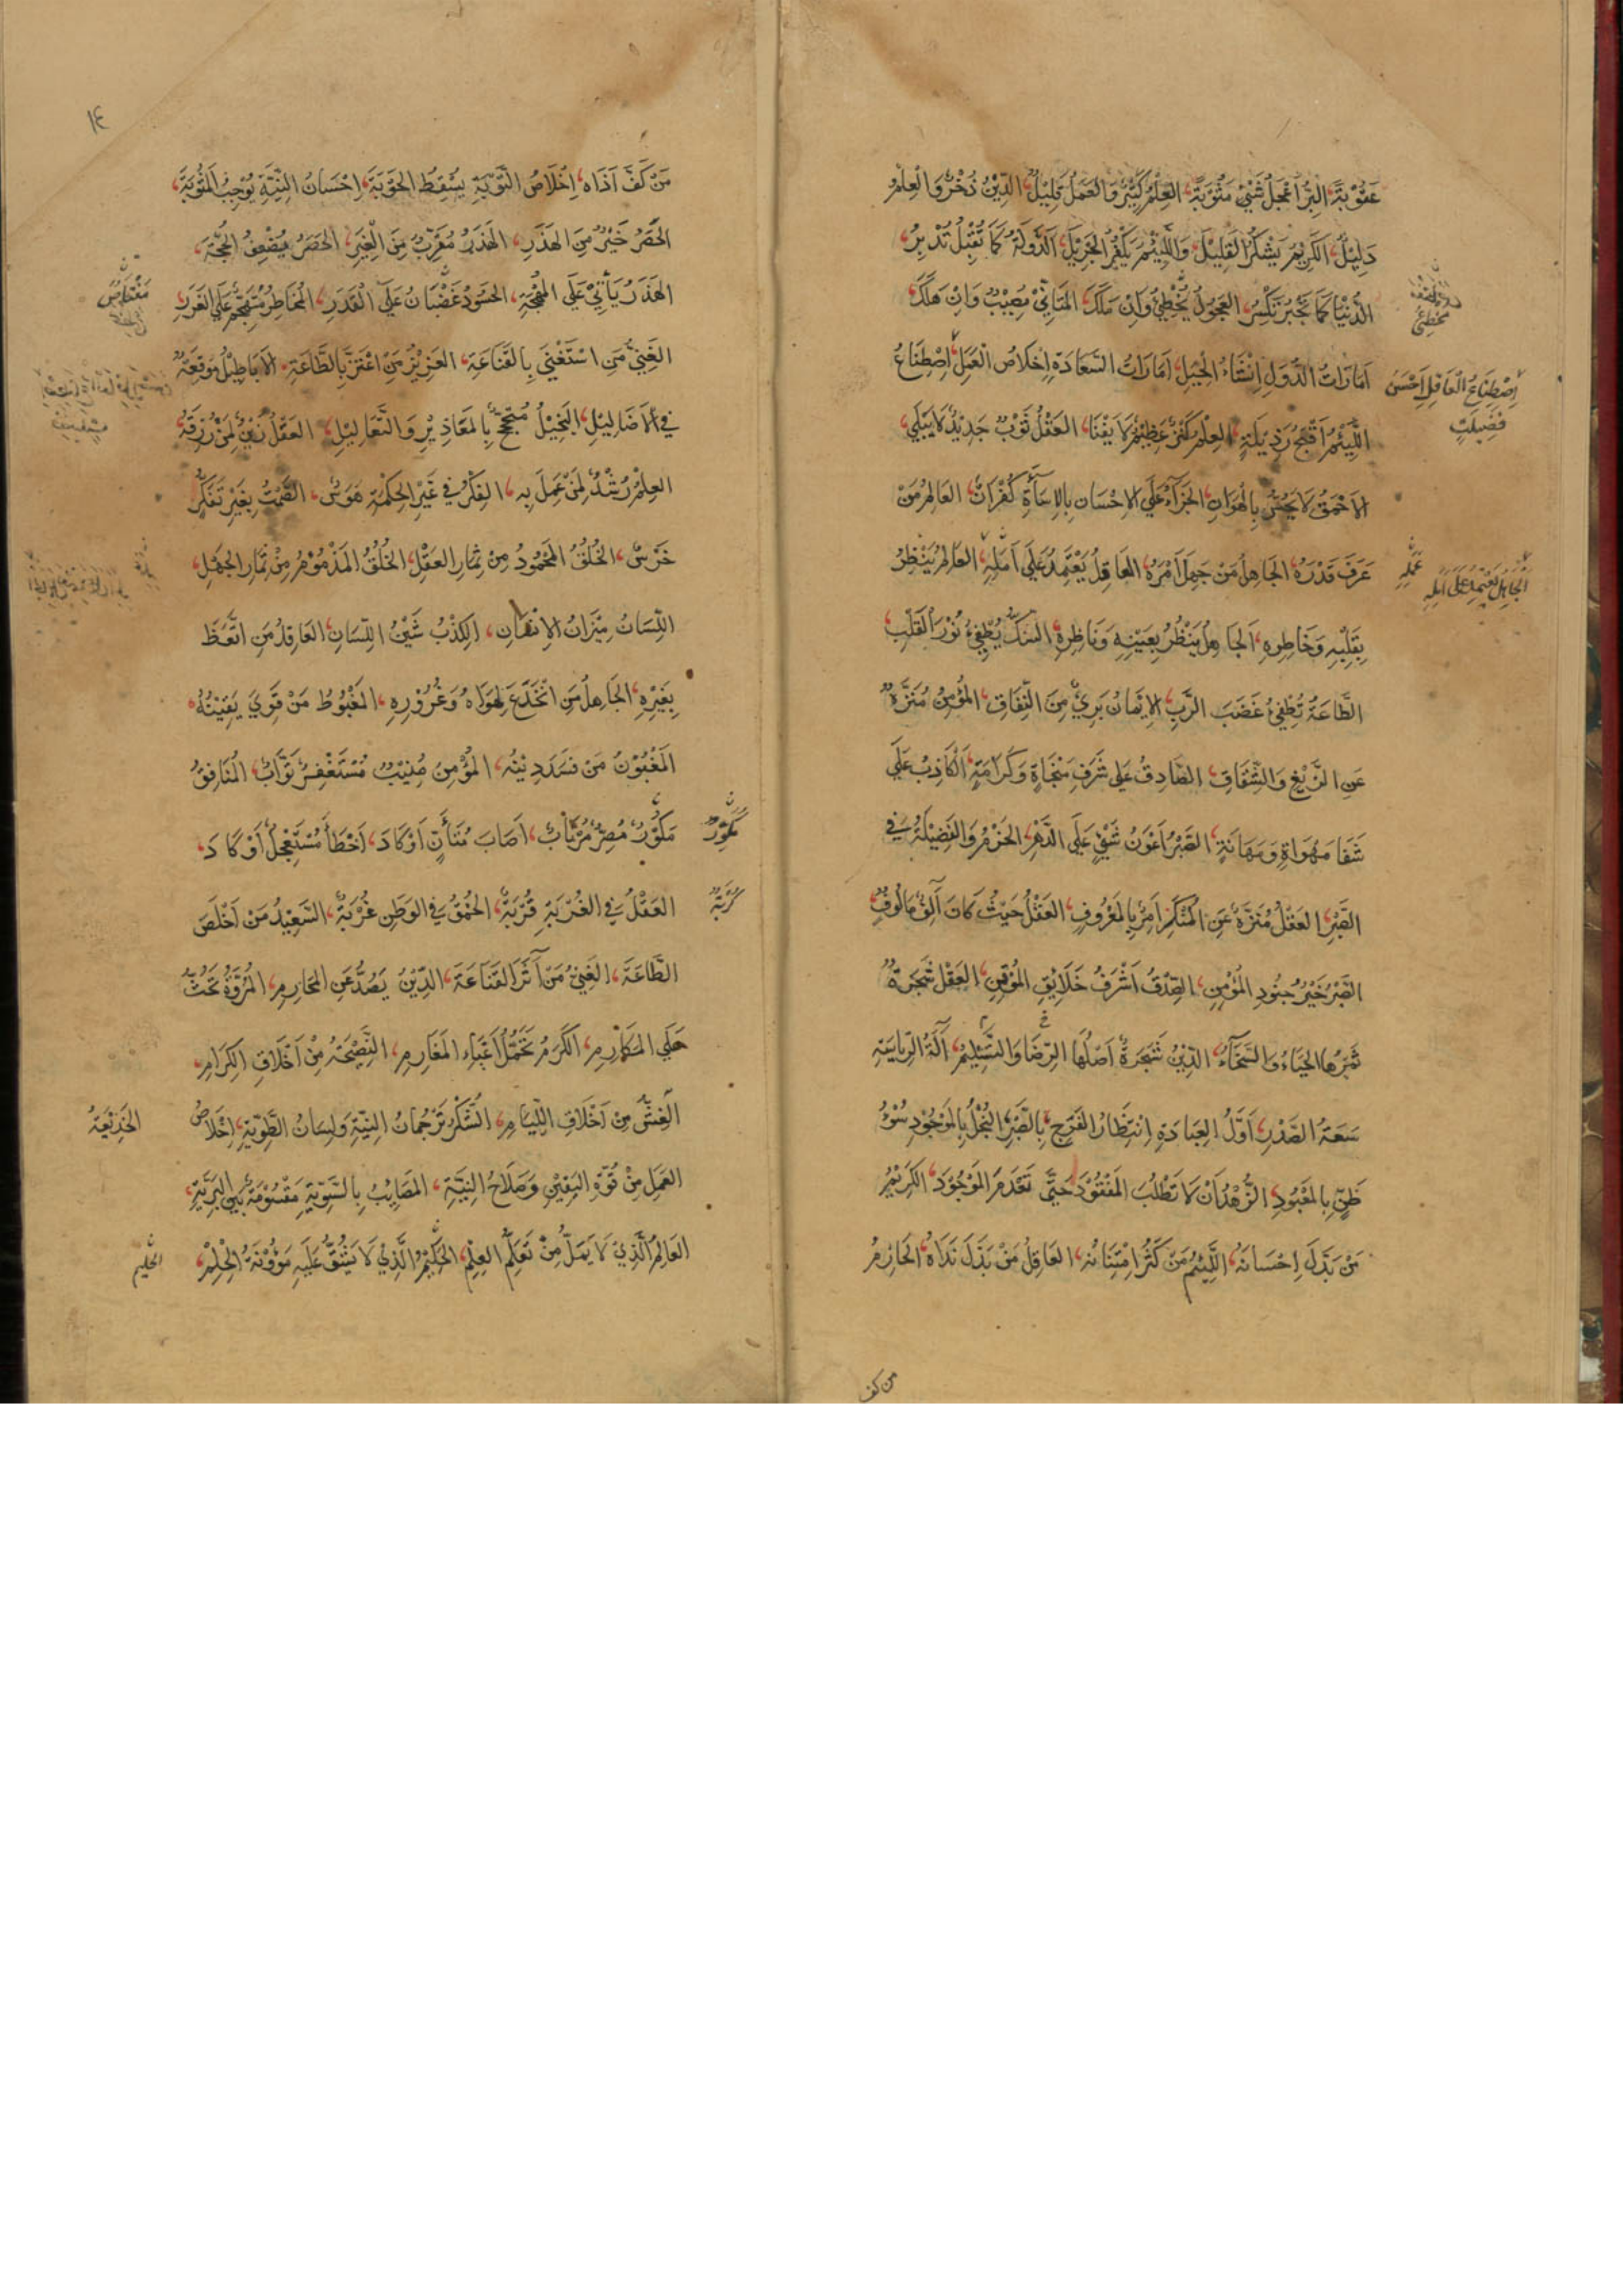 عُقُوْبَةً، البِرُّ اَعْجَلُ شَيْئٍ مَثُوْبَةً، العِلْمُ كَثِيْرٌ وَالعَمَلُ قَلِيْلٌ، الدِّيْنُ ذُخْرٌ وَالعِلْمُ
دَلِيْلٌ، اَلكَرِيْمُ يَشْكُرُ القَلِيْلَ، وَاللَّئِيْمُ يَكْفُرُ الجَزِيْلَ، اَلدَّوْلَةُ كَمَا تُقْبِلُ تُدْبِرُ،
الدُّنْيَا كَمَا تَجْبُرُ تَكْسِرُ، العَجُوْلُ مُخْطِئٌ وَاِنْ مَلَكَ، المُتَاَنِّيْ مُصِيْبٌ وَاِنْ هَلَكَ
مخطئ
اَمَارَاتُ الدُّوَلِ اِنْشَاءُ الحِيَلِ، اَمَارَاتُ السَّعَادَةِ اِخْلَاصُ العَمَلِ، اِصْطِنَاعُ
اِصْطِنَاعُ العَاقِلِ اَحْسَنُ
فَضِيْلَةٍ
اللَّئِيْمِ اَقْبَحُ رَذِيْلَةٍ، العِلْمُ كَنْزٌ عَظِيْمٌ لَا يَفْنَا، العَقْلُ ثَوْبٌ جَدِيْدٌ لَا يَبْلَي،
الاَحْمَقُ لَا يَحُسُّ بِالهَوَانِ، الجَزَآءُ عَلَي الاِحْسَانِ بِالاِسَآءَةِ كُفْرَانٌ، العَالِمُ مَنْ
عَرَفَ قَدْرَهُ، الجَاهِلُ مَنْ جَهِلَ اَمْرَهُ، العَاقِلُ يَعْتَمِدُ عَلَي اَمَلِهِ، العَالِمُ يَنْظُرُ
عَمَلِهِ
الجَاهِلُ يَعْتَمِدُ عَلَى اَمَلِهِ
بِقَلْبِهِ وَخَاطِرِهِ، اَلجَاهِلُ يَنْظُرُ بِعَيْنِهِ وَنَاظِرِهِ، الشَكُّ يُطْفِئُ نُوْرَ القَلْبِ،
الطَّاعَةُ تُطْفِئُ غَضَبَ الرَّبِّ، الاِيْمَانُ بَرِيٌّ مِنَ النِّفَاقِ، المُؤْمِنُ مُنَزَّهٌ
عَنِ الزَّيْغِ وَالشِّقَاقِ، الصَّادِقُ عَلي شَرَفِ مَنْجَاةٍ وَكَرَامَةٍ، اَلكَاذِبُ عَلَي
شَفَا مَهْوَاةٍ وَمَهَانَةٍ، الصَّبْرُ اَعْوَنُ شَيْئٍ عَلَي الدَّهْرِ، الحَزْمُ وَالفَضِيْلَةُ فِي
الصَّبْرِ، العَقْلُ مُنَزِّهٌ عَنِ المُنْكَرِ اٰمِرٌ بِالمَعْرُوفِ، العَقْلُ حَيْثُ كَانَ آلِفٌ مَالُوفٌ
الصَّبْرُ خَيْرُ جُنُودِ المُؤْمِنِ، الصِّدْقُ اَشْرَفُ خَلَائِقِ المُوْقِنِ، العَقْلُ شَجَرَةٌ
ثَمَرُهَا الحَيَاءُ وَالسَّخَآءُ، الدِّيْنُ شَجَرَةٌ اَصْلُهَا الرِّضَا وَالتَّسْلِيْمُ، آلَةُ الرِّيَاسَةِ
سَعَةُ الصَّدْرِ، اَوَّلُ العِبَادَةِ اِنْتِظَارُ الفَرَجِ بِالصَّبْرِ، البُخْلُ بِالمَوْجُوْدِ سُوْءُ
ظَنٍّ بِالمَعْبُودِ، الزُّهْدُ اَنْ لَا تَطْلُبَ المَفْقُوْدَ حَتَّي تَعْدَمَ المَوْجُوْدَ، الكَرِيْمُ
مَنْ بَذَلَ اِحْسَانَهُ، اللَّئِيْمُ مَنْ كَثُرَ اِمْتِنَانُهُ، العَاقِلُ مَنْ بَذَلَ نَدَاهُ، الحَازِمُ
من كف
١٤
مَنْ كَفَّ اَذَاه، اِخْلَاصُ التَّوْبَةِ يُسْقِطُ الحَوْبَةَ، اِحْسَانُ النِّيَّةِ يُوْجِبُ المَثُوْبَةَ،
الحَصَرُ خَيْرٌ مِنَ الهَذَرِ، الهَذَرُ مُقَرِّبٌ مِنَ الغِيَرِ، الحَصَرُ يُضْعِفُ الحُجَّةَ،
الهَذَرُ يَأْتِيْ عَلَي المُهْجَةِ، الحَسُوْدُ غَضْبَانُ عَلَي القَدَرِ، المُخَاطِرُ مُتَهَجِّمٌ عَلَي الغَرَرِ
الغَنِيُّ مَنِ اسْتَغْنَي بِالقَنَاعَةِ، العَزِيْزُ مَنِ اعْتَزَّ بِالطَّاعَةِ، الاَبَاطِيْلُ مُوْقِعَةٌ
فِي الاَضَالِيْلِ، البَخِيْلُ مُتَحَجِّجٌ بِالمَعَاذِيْرِ وَالتَّعَالِيْلِ، العَقْلُ زَيْنٌ لِمَنْ رُزِقَهُ
العِلْمُ رُشْدٌ لِمَنْ عَمِلَ بِهِ، الفِكْرُ فِي غَيْرِ الحِكْمَةِ هَوَسٌ، الصَّمْتُ بِغَيْرِ تَفَكُّرٍ
خَرَسٌ، الخُلُقُ المَحْمُودُ مِنْ ثِمَارِ العَقْلِ، الخُلُقُ المَذْمُوْمُ مِنْ ثِمَارِ الجَهْلِ،
اللِّسَانُ مِيْزَانُ الاِنْسَانِ، الكَذْبُ شَيْنُ اللِّسَانِ، العَاقِلُ مَنِ اتَّعَظَ
بِغَيْرِهِ، الجَاهِلُ مَنِ انْخَدَعَ لِهَوَاهُ وَغُرُوْرِهِ، المَغْبُوطُ مَنْ قَوِيَ يَقِيْنُهُ،
المَغْبُوْنُ مَنْ فَسَدَ دِيْنُه، المُؤْمِنُ مُنِيْبٌ مُسْتَغْفِرٌ تَوَّابٌ، المُنَافِقُ
مَكُوْرٌ مُصِرٌّ مُرْتَابٌ، اَصَابَ مُتَأَنٍّ اَوْ كَادَ، اَخْطَأَ مُسْتَعْجِلٌ اَوْ كَادَ،
العَقْلُ فِي الغُرْبَةِ قُرْبَةٌ، الحُمْقُ فِي الوَطَنِ غُرْبَةٌ، السَّعِيْدُ مَنْ اَخْلَصَ
الطَّاعَةَ، الغَنِيُّ مَنْ آثَرَ القَنَاعَةَ، الدِّيْنُ يَصُدُّ عَنِ المَحَارِمِ، المُرُوَّةُ تَحُثُّ
عَلَي المَكَارِمِ، الكَرَمُ تَحَمُّلُ اَعْبَاءِ المَغَارِمِ، النَّصِيْحَةُ مِنْ اَخْلَاقِ الكِرَامِ،
الغِشُّ مِنْ اَخْلَاقِ اللِّئَامِ، الشُّكْرُ تَرْجُمَانُ النِّيَّةِ وَلِسَانُ الطَّوِيَّةِ، اِخْلَاصُ
الخَدِيْعَةُ
العَمَلِ مِنْ قُوَّةِ اليَقِيْنِ وَصَلَاحِ النِّيَّةِ، المَصَائِبُ بِالسَّوِيَّةِ مَقْسُوْمَةٌ بَيْنَ البَرِيَّةِ،
العَالِمُ الَّذِيْ لَا يَمَلُّ مِنْ تَعَلُّمِ العِلْمِ، الحَكِيْمُ الَّذِيْ لَا يَشُقُّ عَلَيْهِ مَؤُوْنَةُ الحِلْمِ،
الحليم